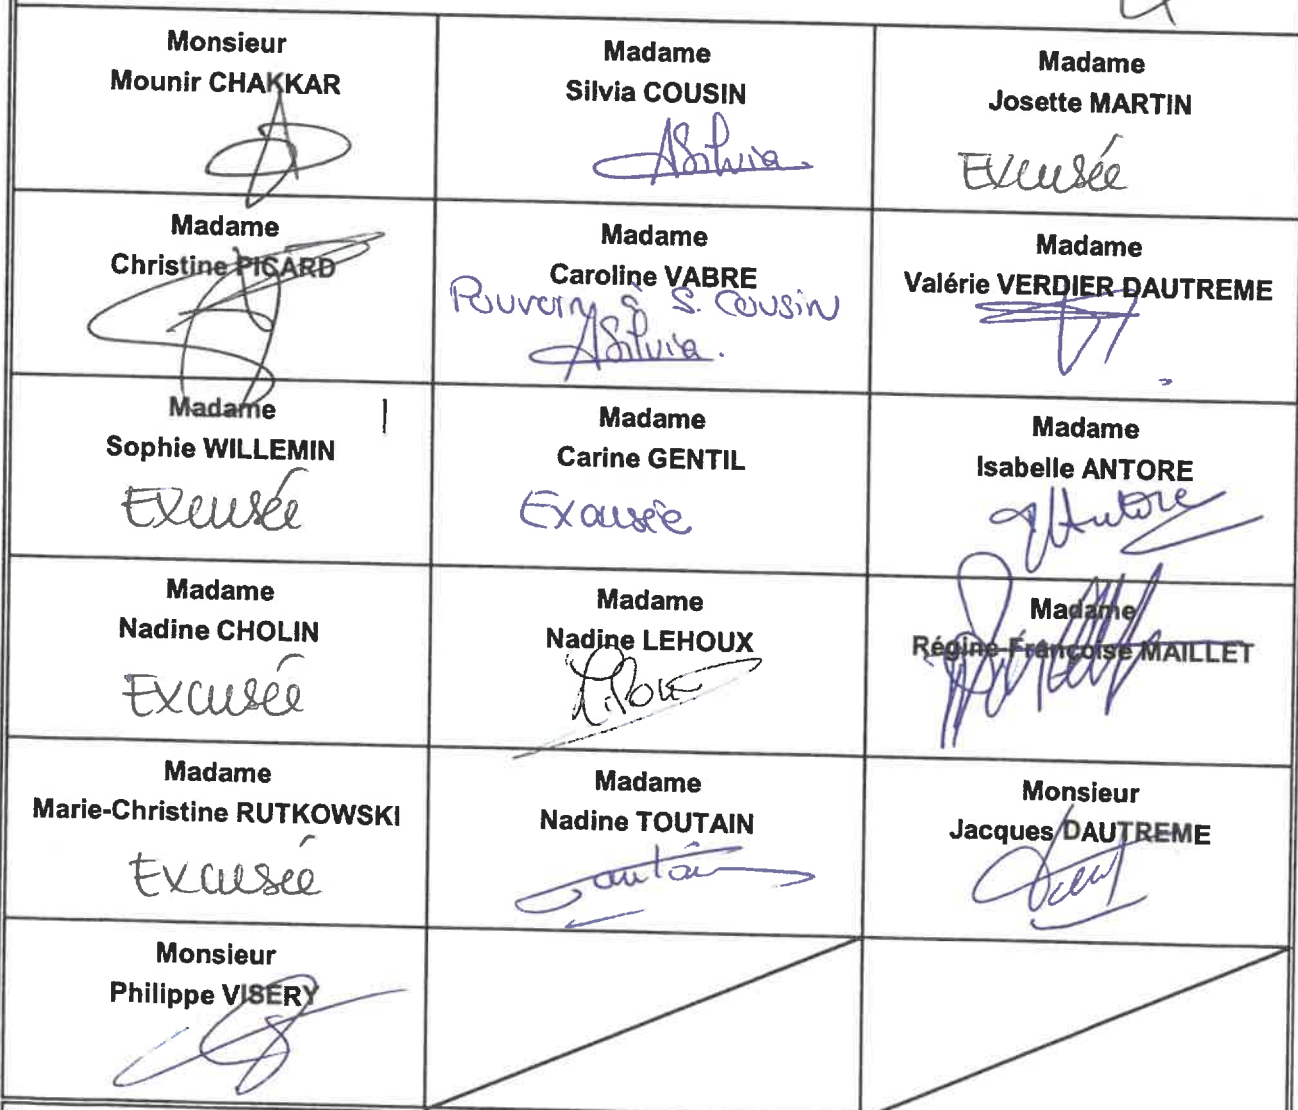 Monsieur
Mounir CHAKKAR
Madame
Silvia COUSIN
Silvia
Madame
Josette MARTIN
Excusée
Madame
Christine PICARD
Madame
Caroline VABRE
Pouvoir à S. Cousin
Silvia.
Madame
Valérie VERDIER DAUTREME
Madame
Sophie WILLEMIN
Excusée
Madame
Carine GENTIL
Excusée
Madame
Isabelle ANTORE
Antore
Madame
Nadine CHOLIN
Excusée
Madame
Nadine LEHOUX
Madame
Régine-Françoise MAILLET
Madame
Marie-Christine RUTKOWSKI
Excusée
Madame
Nadine TOUTAIN
Toutain
Monsieur
Jacques DAUTREME
Monsieur
Philippe VISERY